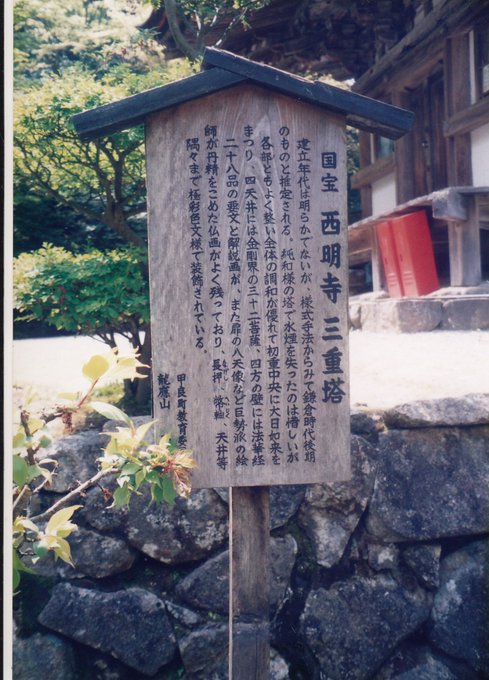 国宝 西明寺 三重塔
建立年代は明らかでないが、様式手法からみて鎌倉時代後期
のものと推定される。純和様の塔で水煙を失ったのは惜しいが
各部ともよく整い全体の調和が優れて初重中央に大日如来を
まつり、四天井には金剛界の三十二菩薩、四方の壁には法華経
二十八品の要文と解説画が、また扉の八天像など巨勢派の絵
師が丹精をこめた仏画がよく残っており、長押、幣軸、天井等
隅々まで極彩色文様で装飾されている。
甲良町教育委
龍應山